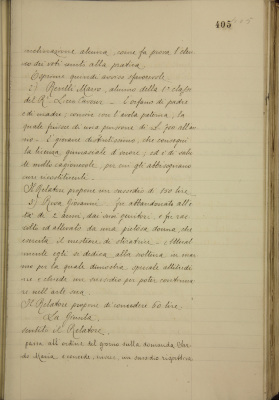 405
inclinazione alcuna, come fa prova l'elen
co dei voti uniti alla pratica.
Esprime quindi avviso sfavorevole.
2) Revelli Mario, alunno della 1ª classe
del R. Liceo Cavour. È orfano di padre
e di madre; convive con l'avola paterna, la
quale fruisce di una pensione di L. 700 all'an
no. È giovane distintissimo, che conseguì
la licenza ginnasiale d'onore; ed è di salu
te molto cagionevole, per cui gli abbisognano
cure ricostituenti.
Il Relatore propone un sussidio di 150 lire.
3) Riva Giovanni. Fu abbandonato all'e
tà di 2 anni dai suoi genitori, e fu rac
colto ed allevato da una pietosa donna, che
esercita il mestiere di stiratrice.
egli si dedica alla scultura in mar
mo per la quale dimostra speciale attitudi
ne e chiede un sussidio per poter continua
re nell'arte sua.
Il Relatore propone di concedere 50 lire.
La Giunta,
sentito il Relatore,
passa all'ordine del giorno sulla domanda
Maria, e concede, invece, un sussidio rispettiva